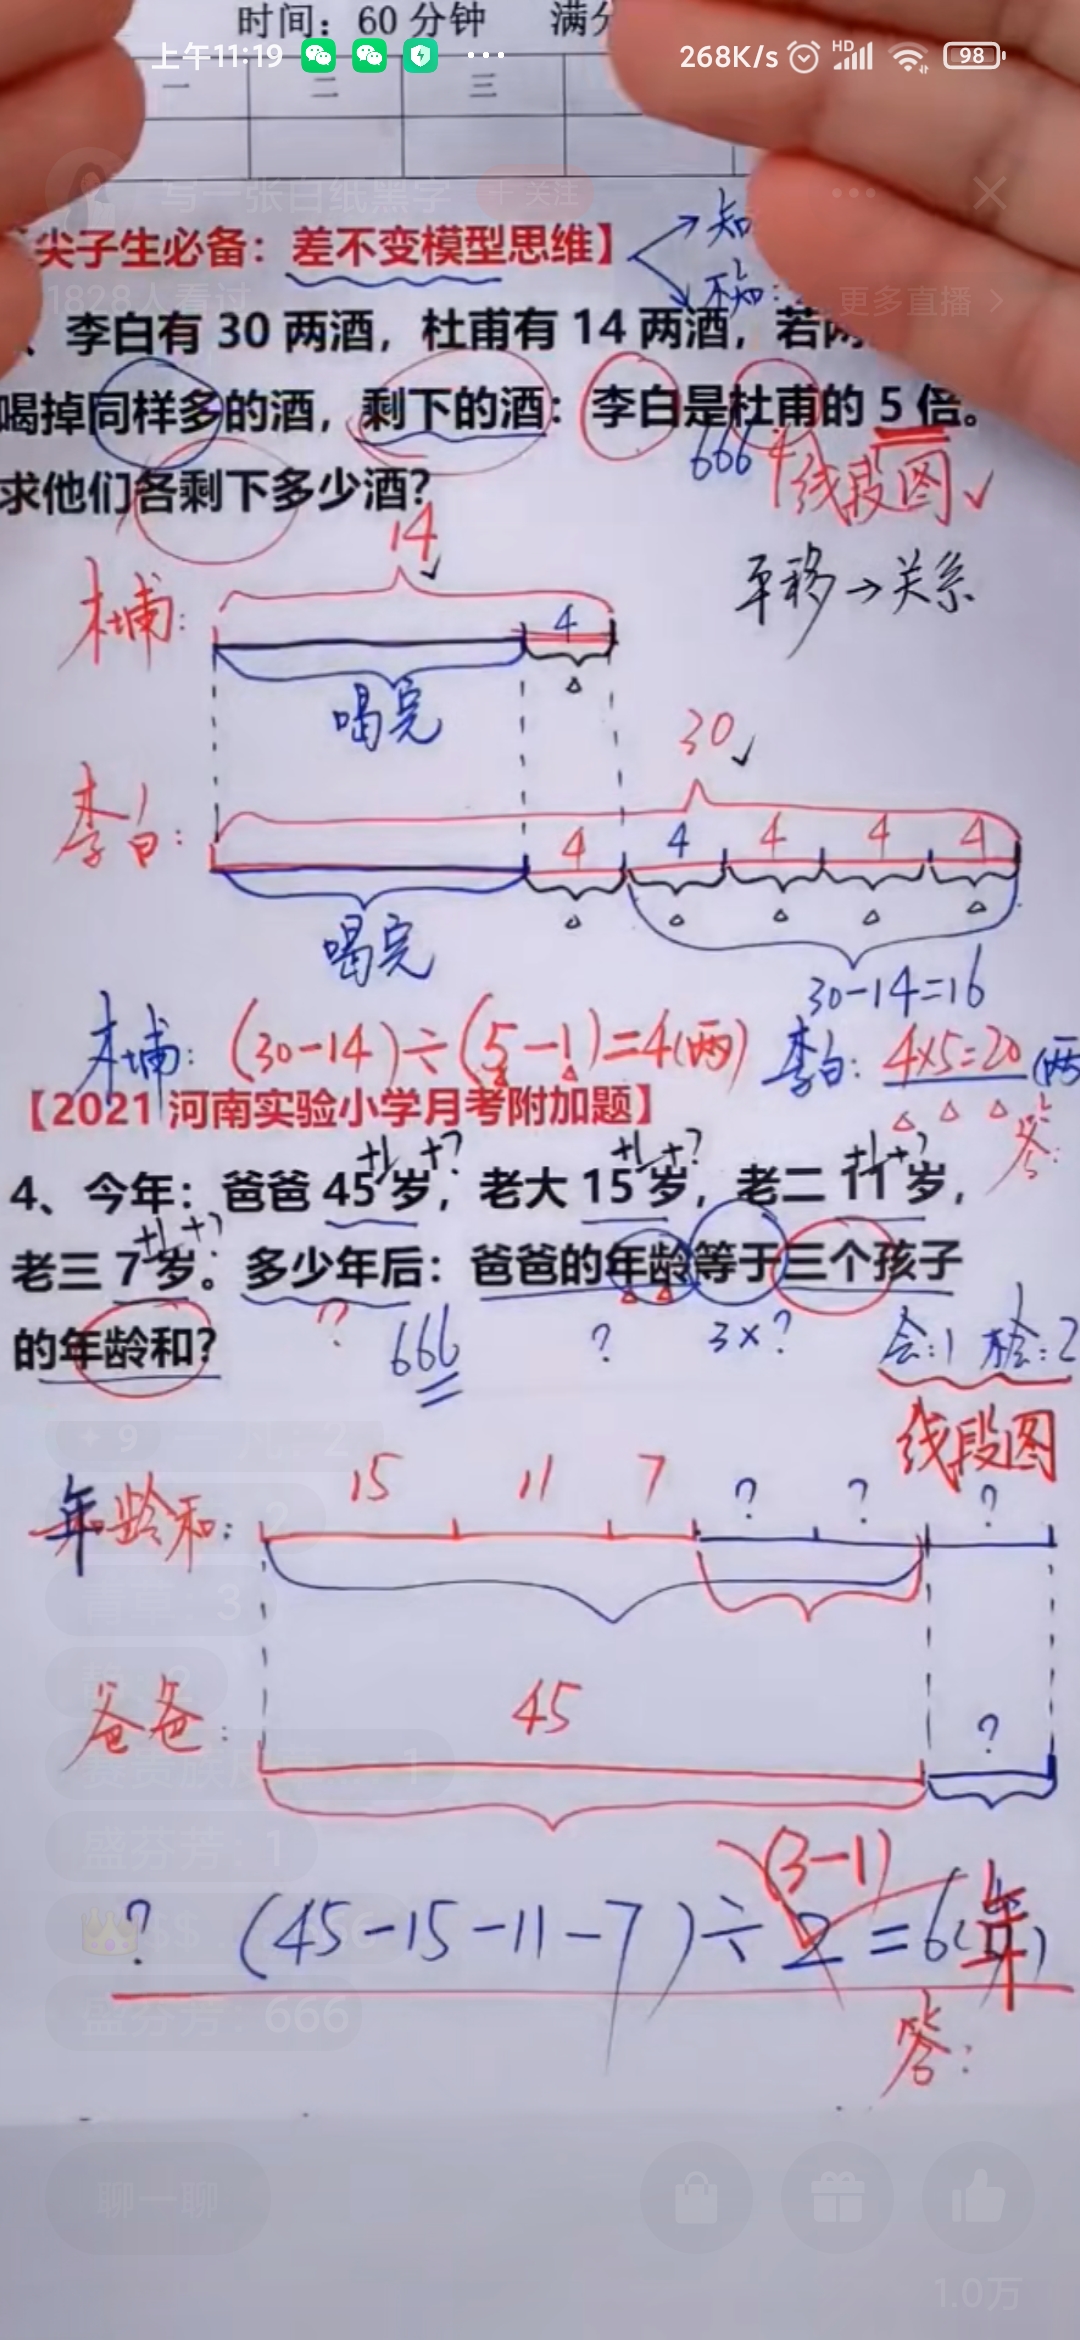 时间：60 分钟 满分
上午11:19 ··· 268K/s HD 98
一 二 三
写一张白纸黑字 + 关注
尖子生必备：差不变模型思维】 知
1828人看过 不知： 更多直播 >
、李白有 30 两酒，杜甫有 14 两酒，若两
喝掉同样多的酒，剩下的酒：李白是杜甫的 5 倍。
666 线段图✓
求他们各剩下多少酒？
14✓
平移→关系
杜甫：
4
△
喝完
30✓
李白：
4 4 4 4 4
△ △ △ △ △
喝完
30-14=16
杜甫：(30-14)÷(5-1)=4(两) 李白：4×5=20(两
△ △ △ △ △
【2021 河南实验小学月考附加题】 答：
+1 +? +1 +? +1 +?
4、今年：爸爸 45 岁，老大 15 岁，老二 11 岁，
+1 +?
老三 7 岁。多少年后：爸爸的年龄等于三个孩子
△ △
的年龄和？ ? 666 ? 3×? 会:1 不会:2
线段图
9 一 2
15 11 7 ? ? ?
年龄和：
青草：3
45
爸爸： ?
1
盛芬芳：1
(3-1)
? (45-15-11-7)÷2=6(年)
盛芬芳：666
答：
聊一聊
1.0万